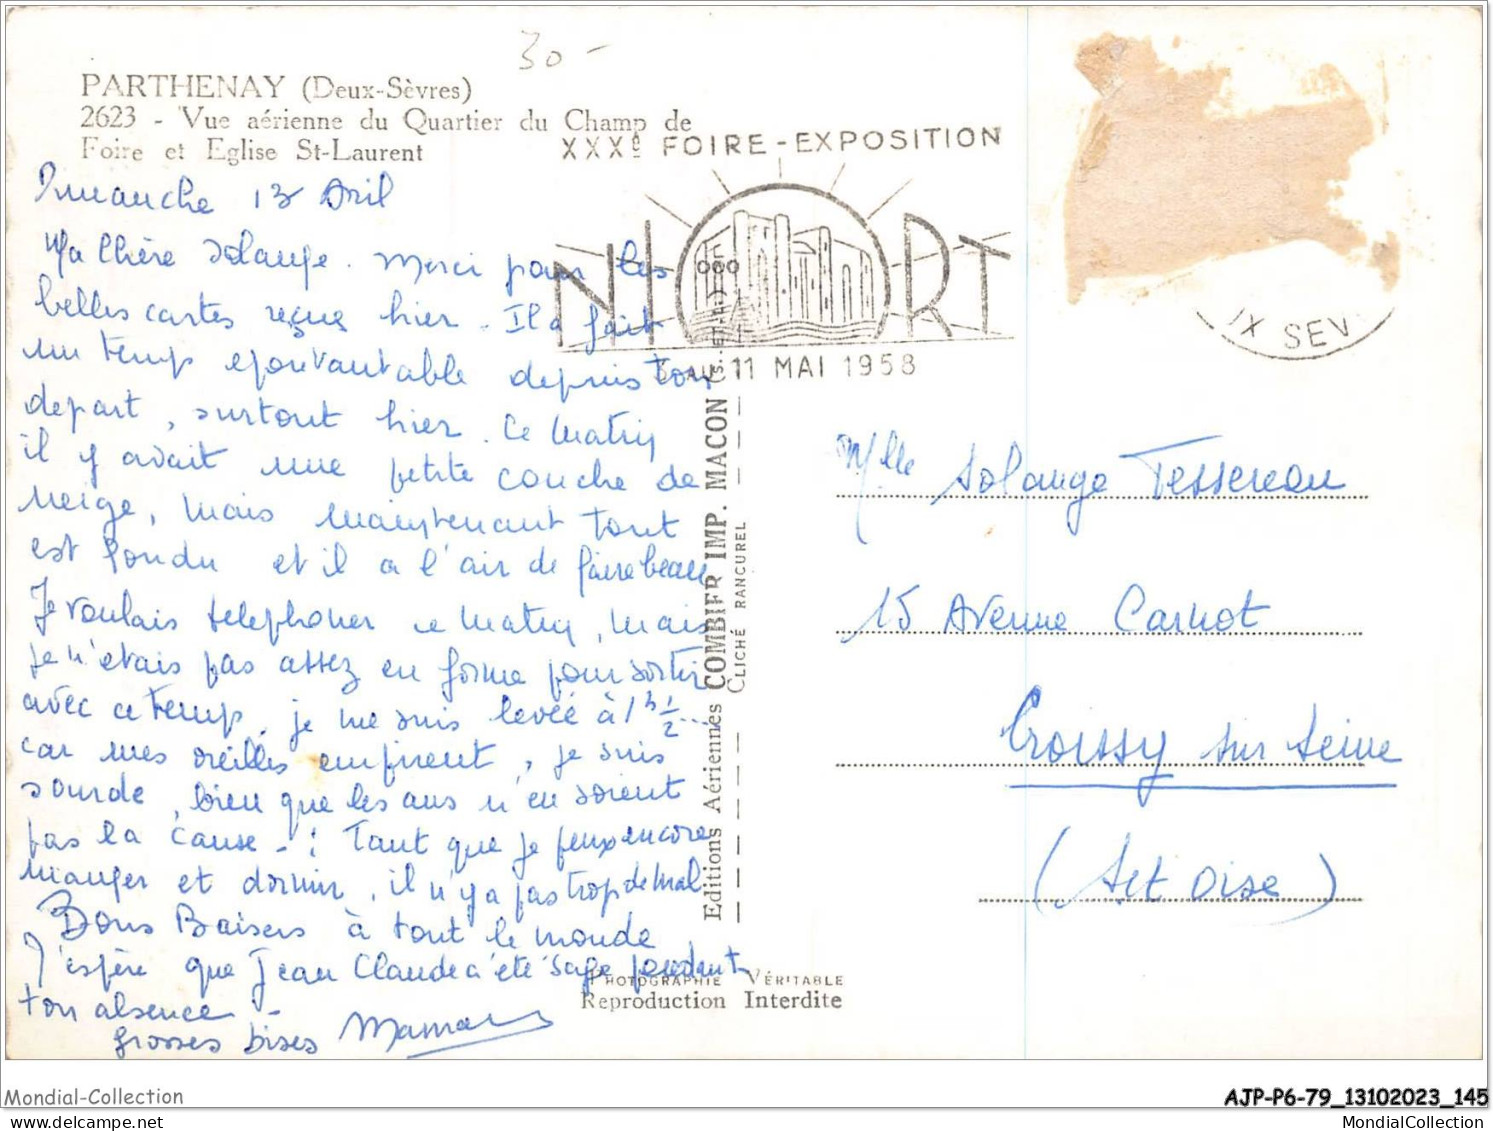 30 -
PARTHENAY (Deux-Sèvres)
2623 - Vue aérienne du Quartier du Champ de
Foire et Eglise St-Laurent
XXXe FOIRE-EXPOSITION
NIORT
AU 11 MAI 1958
IX SEV
Dimanche 13 Avril
Ma Chère Solange. Merci pour les
belles cartes reçues hier. Il a fait
un temps epouvantable depuis ton
depart, surtout hier. Ce matin
il y avait une petite couche de
neige, mais maintenant tout
est fondu et il a l'air de faire beau
Je voulais telephoner ce matin, mais
je n'etais pas assez en forme pour sortir
avec ce temps, je me suis levée à 1h 1/2...
car mes oreilles empirent, je suis
sourde, bien que les ans n'en soient
pas la cause - ! Tant que je peux encore
manger et dormir, il n'y a pas trop de mal
Bons Baisers à tout le monde
J'espère que Jean Claude a été sage pendant
ton absence -
grosses bises Maman
Editions Aériennes COMBIER IMP. MACON (S.-ET-L.)
CLICHÉ RANCUREL
PHOTOGRAPHIE VÉRITABLE
Reproduction Interdite
Mlle Solange Tessereau
15 Avenue Carnot
Croissy sur Seine
(Set Oise)
Mondial-Collection
AJP-P6-79_13102023_145
www.mondial-collection.com
MondialCollection